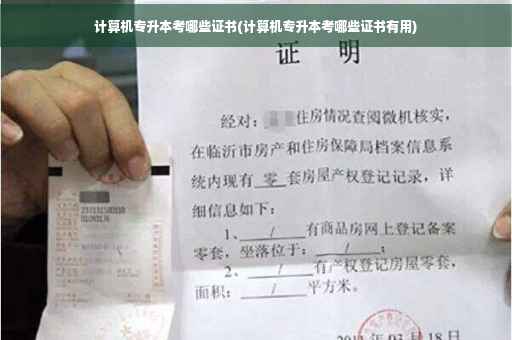 计算机专升本考哪些证书(计算机专升本考哪些证书有用)
证 明
经对: 住房情况查阅微机核实,
在临沂市房产和住房保障局档案信息系
统内现有 零 套房屋产权登记记录,详
细信息如下:
1、 / 有商品房网上登记备案
零套,坐落位于: / ;
2、 / 有产权登记房屋零套,
面积: / 平方米。
03月18日